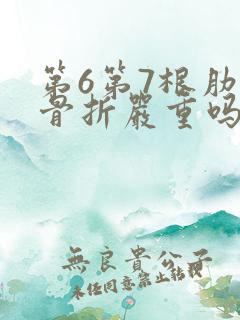 第6第7根肋
骨折严重吗
無良貴公子
未经同意禁止转载